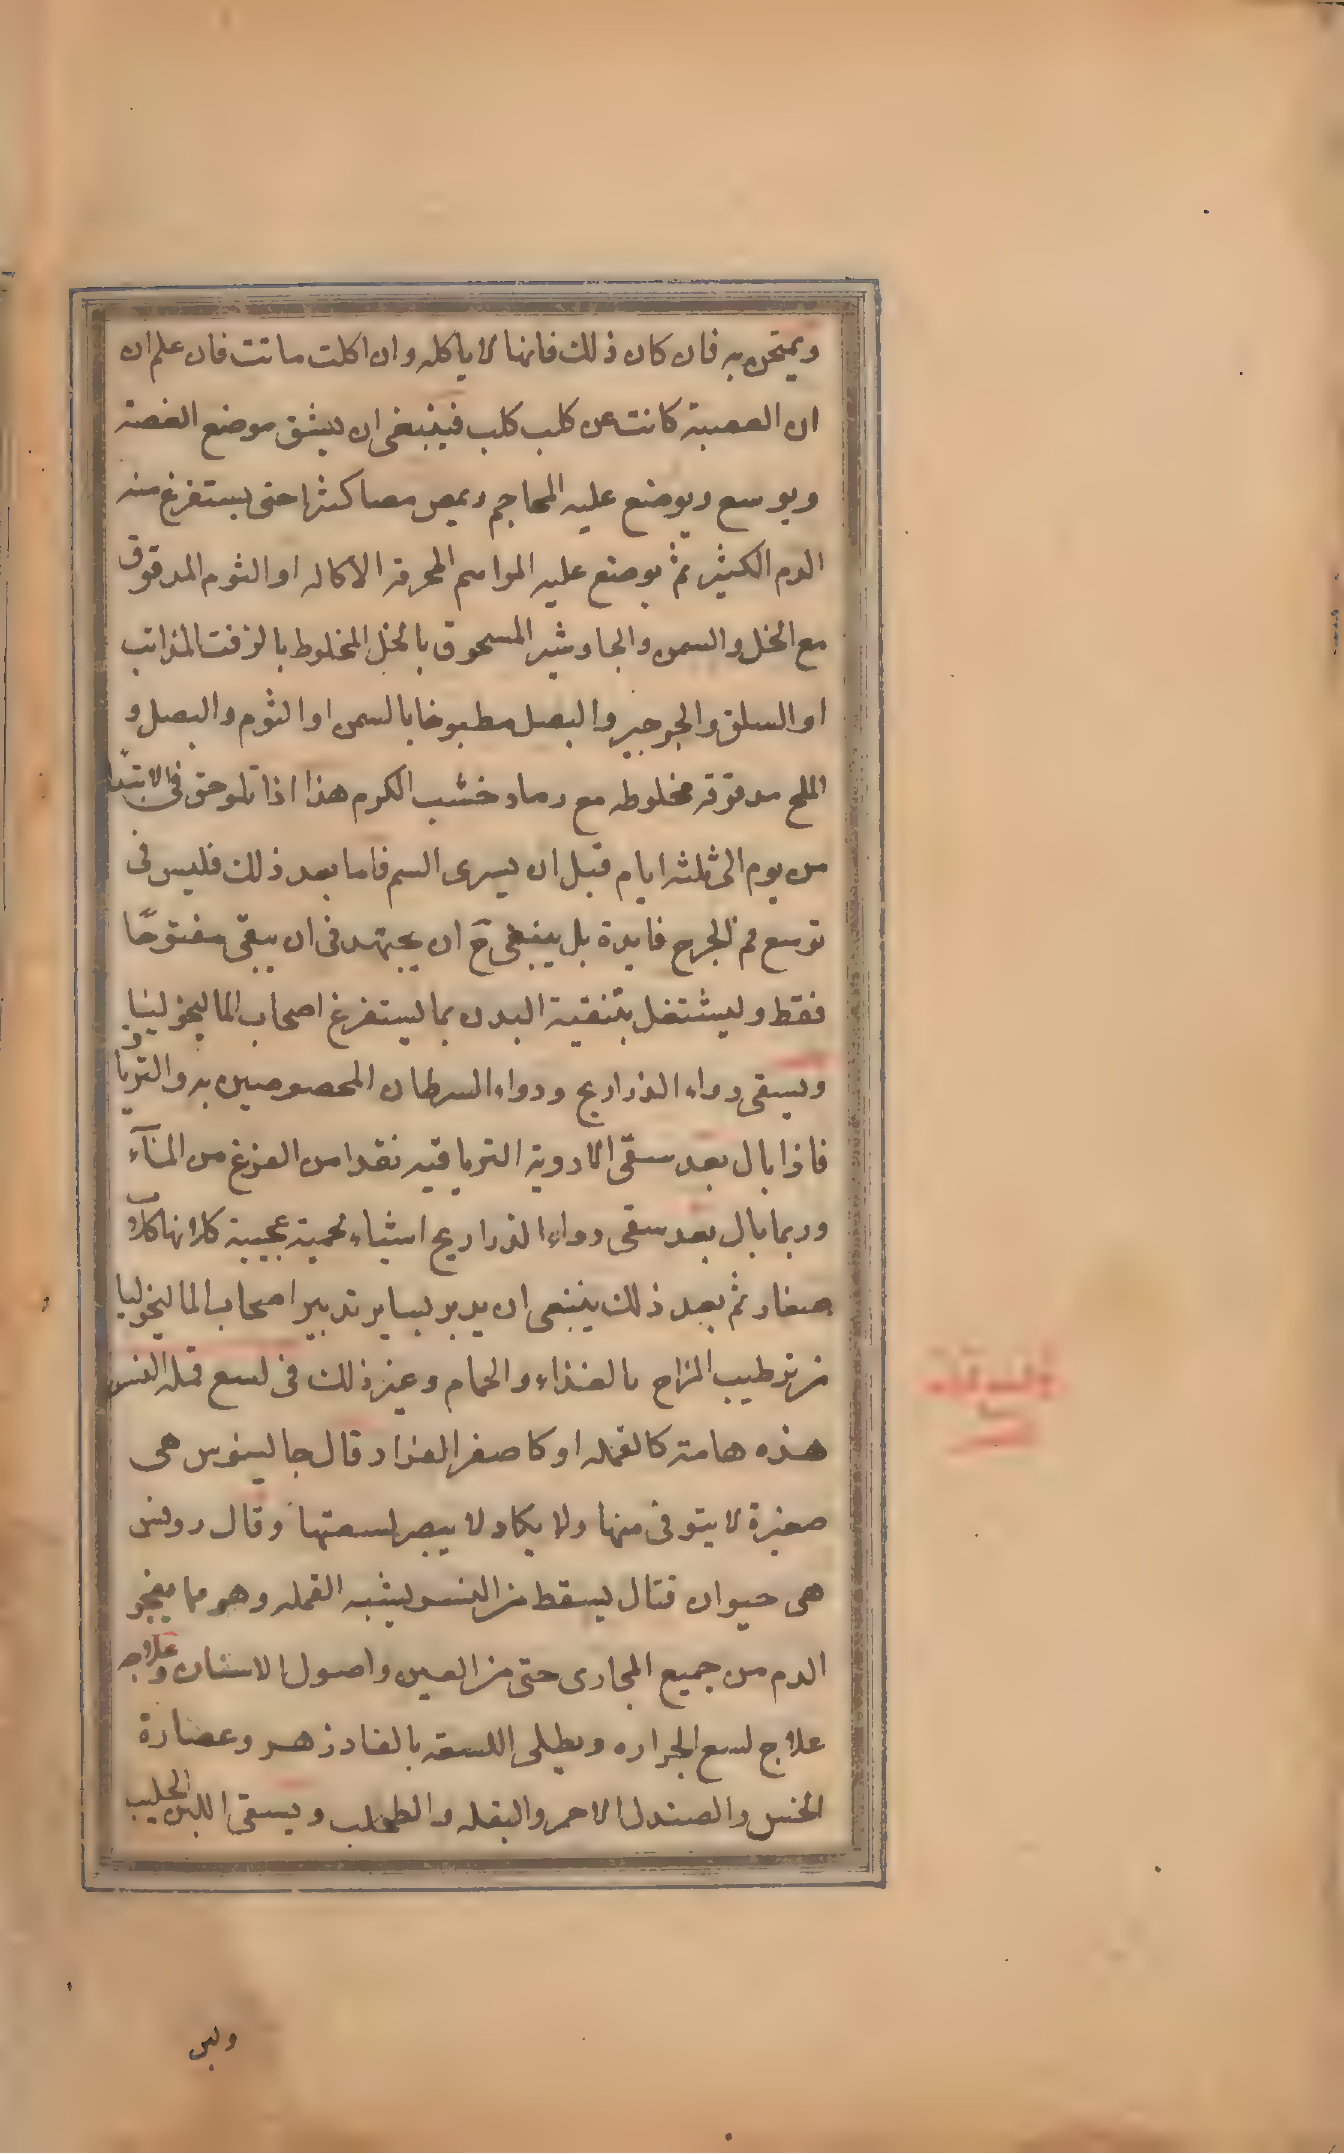 ويمتحن به فان كان ذلك فانها لا ياكله وان اكلت ماتت فان علم ان
ان العصبة كانت عن كلب كلب فينبغى ان يشق موضع العضة
ويوسع ويوضع عليه المحاجم ويمص مصا كثيرا حتى يستفرغ منه
الدم الكثير ثم يوضع عليه المراسم المحرقة الاكاله او الثوم المدقوق
مع الخل والسمن والجاوشير المسحوق بالخل المخلوط بالزفت المذاتب
او السلق والجرجير والبصل مطبوخا بالسمن او الثوم والبصل و
الملح مدقوقة مخلوطه مع رماد خشب الكرم هذا اذا تلوحق فى الابتداء
من يوم الى ثلثة ايام قبل ان يسرى السم فاما بعد ذلك فليس فى
توسع فم الجرح فايدة بل ينبغى ح ان يجتهد فى ان يبقى مفتوحًا
فقط وليشتغل بتنقية البدن بما يستفرغ اصحاب الماليخوليا
ويسقى دواء الذراريح ودواء السرطان المخصوصين به والترياق
فاذا بال بعد سقى الادوية الترياقيه نقد امن الفزغ من المآء
وربما بال بعد سقى دواء الذراريح اشياء لحمية عجيبة كانها كلاب
صغار ثم بعد ذلك ينبغى ان يدبر بساير تدبير اصحاب الماليخوليا
من ترطيب المزاج بالغذاء والحمام وغير ذلك فى لسع قملة النسر
هذه هامة كالقمله او كاصغر القراد قال جالينوس هى
صغيرة لا يتوقى منها ولا يكاد لا يبصر لسعتها وقال روفس
هى حيوان قتال يسقط من النسر يشبه القمله وهو مما يفجر
الدم من جميع المجارى حتى من العين واصول الاسنان وعلاجه
علاج لسع الجراره ويطلى اللسعه بالفادزهر وعصارة
الخس والصندل الاحمر والبقله والطحلب ويسقى اللبن الحليب